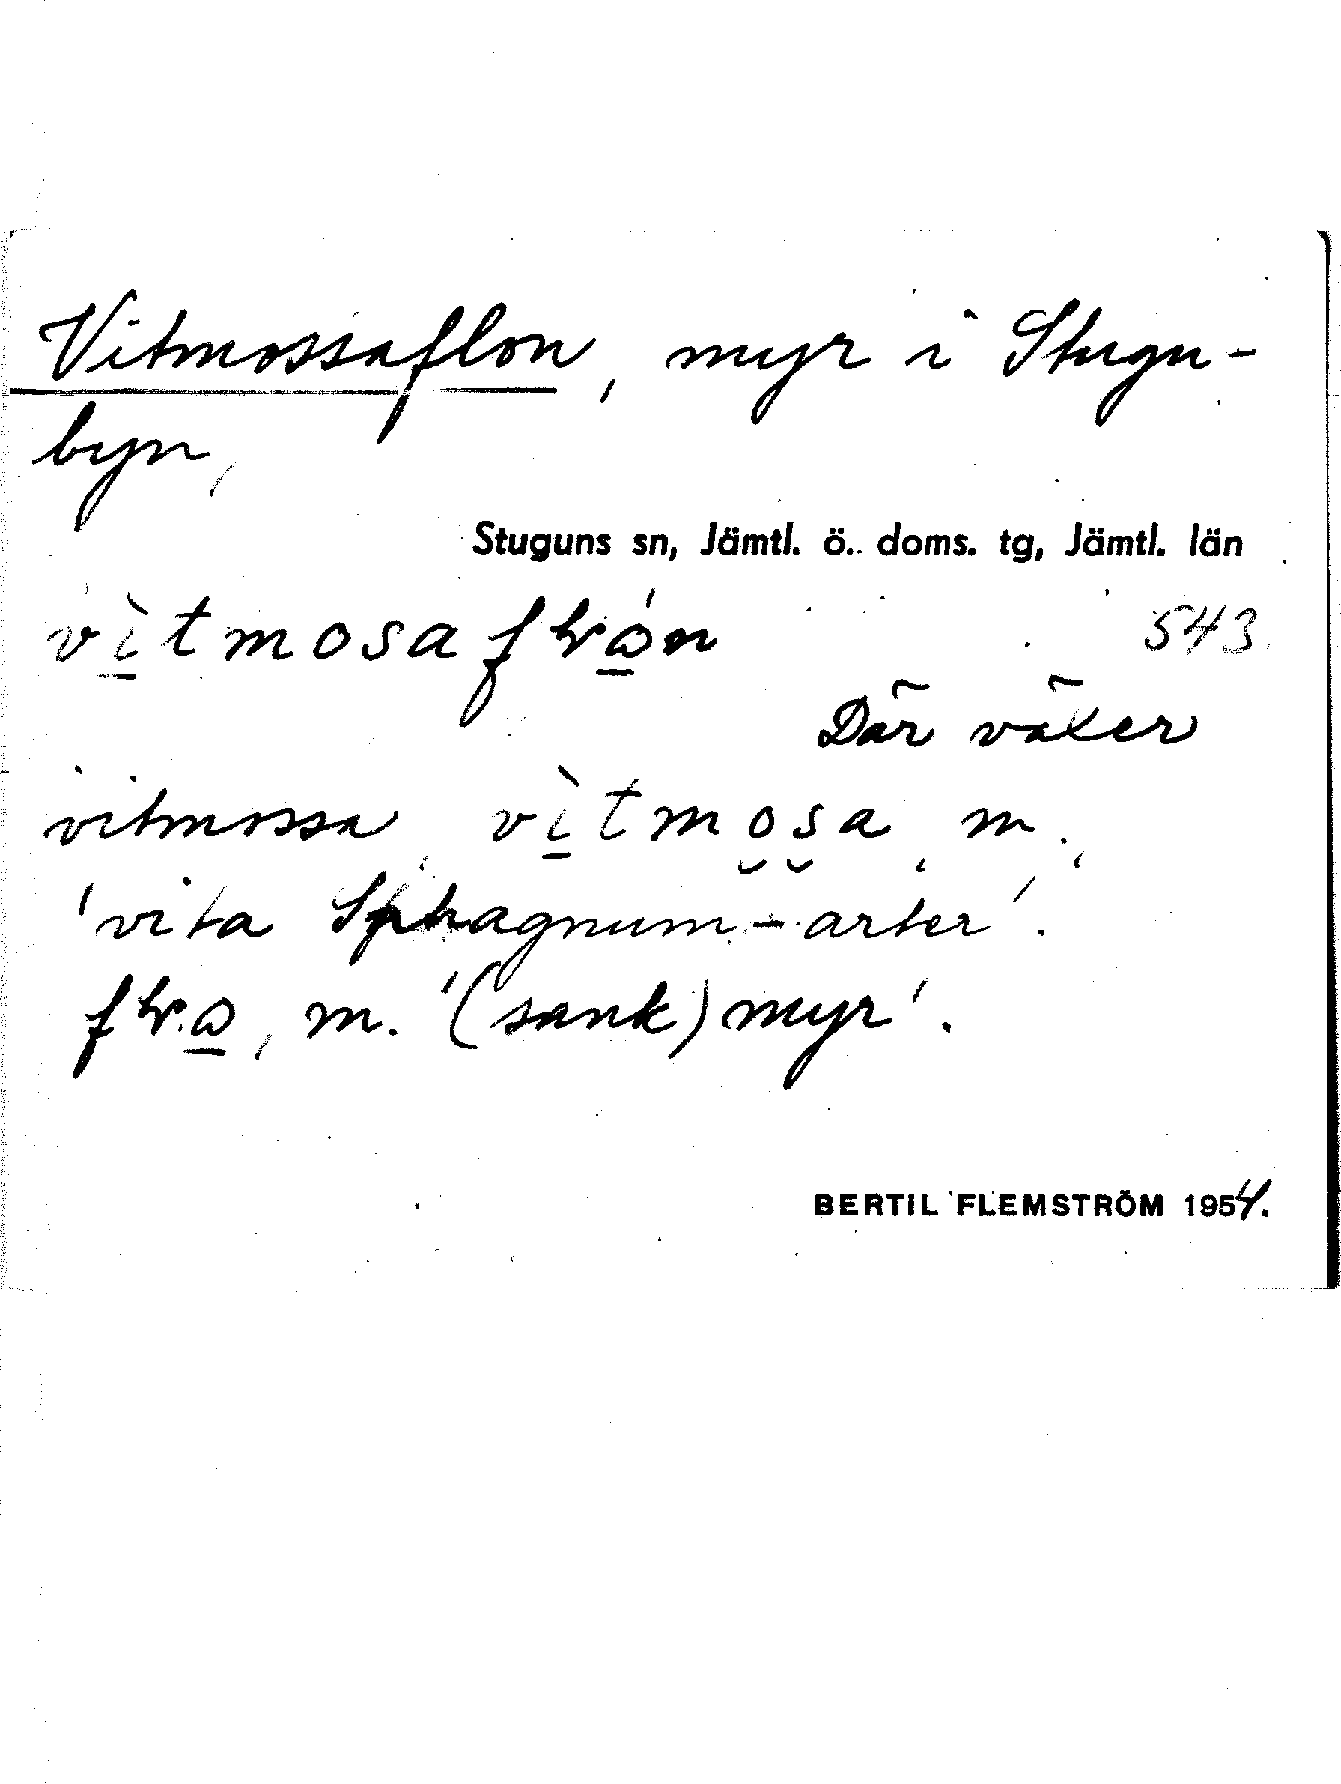 Vitmossaflon, myr i Stugu-
byn,
Stuguns sn, Jämtl. ö. doms. tg, Jämtl. län
543
Där växer
vitmossa, vìtmosa, m.,
'vita Sphagnum-arter'.
m. '(sank) myr'.
BERTIL FLEMSTRÖM 1954.